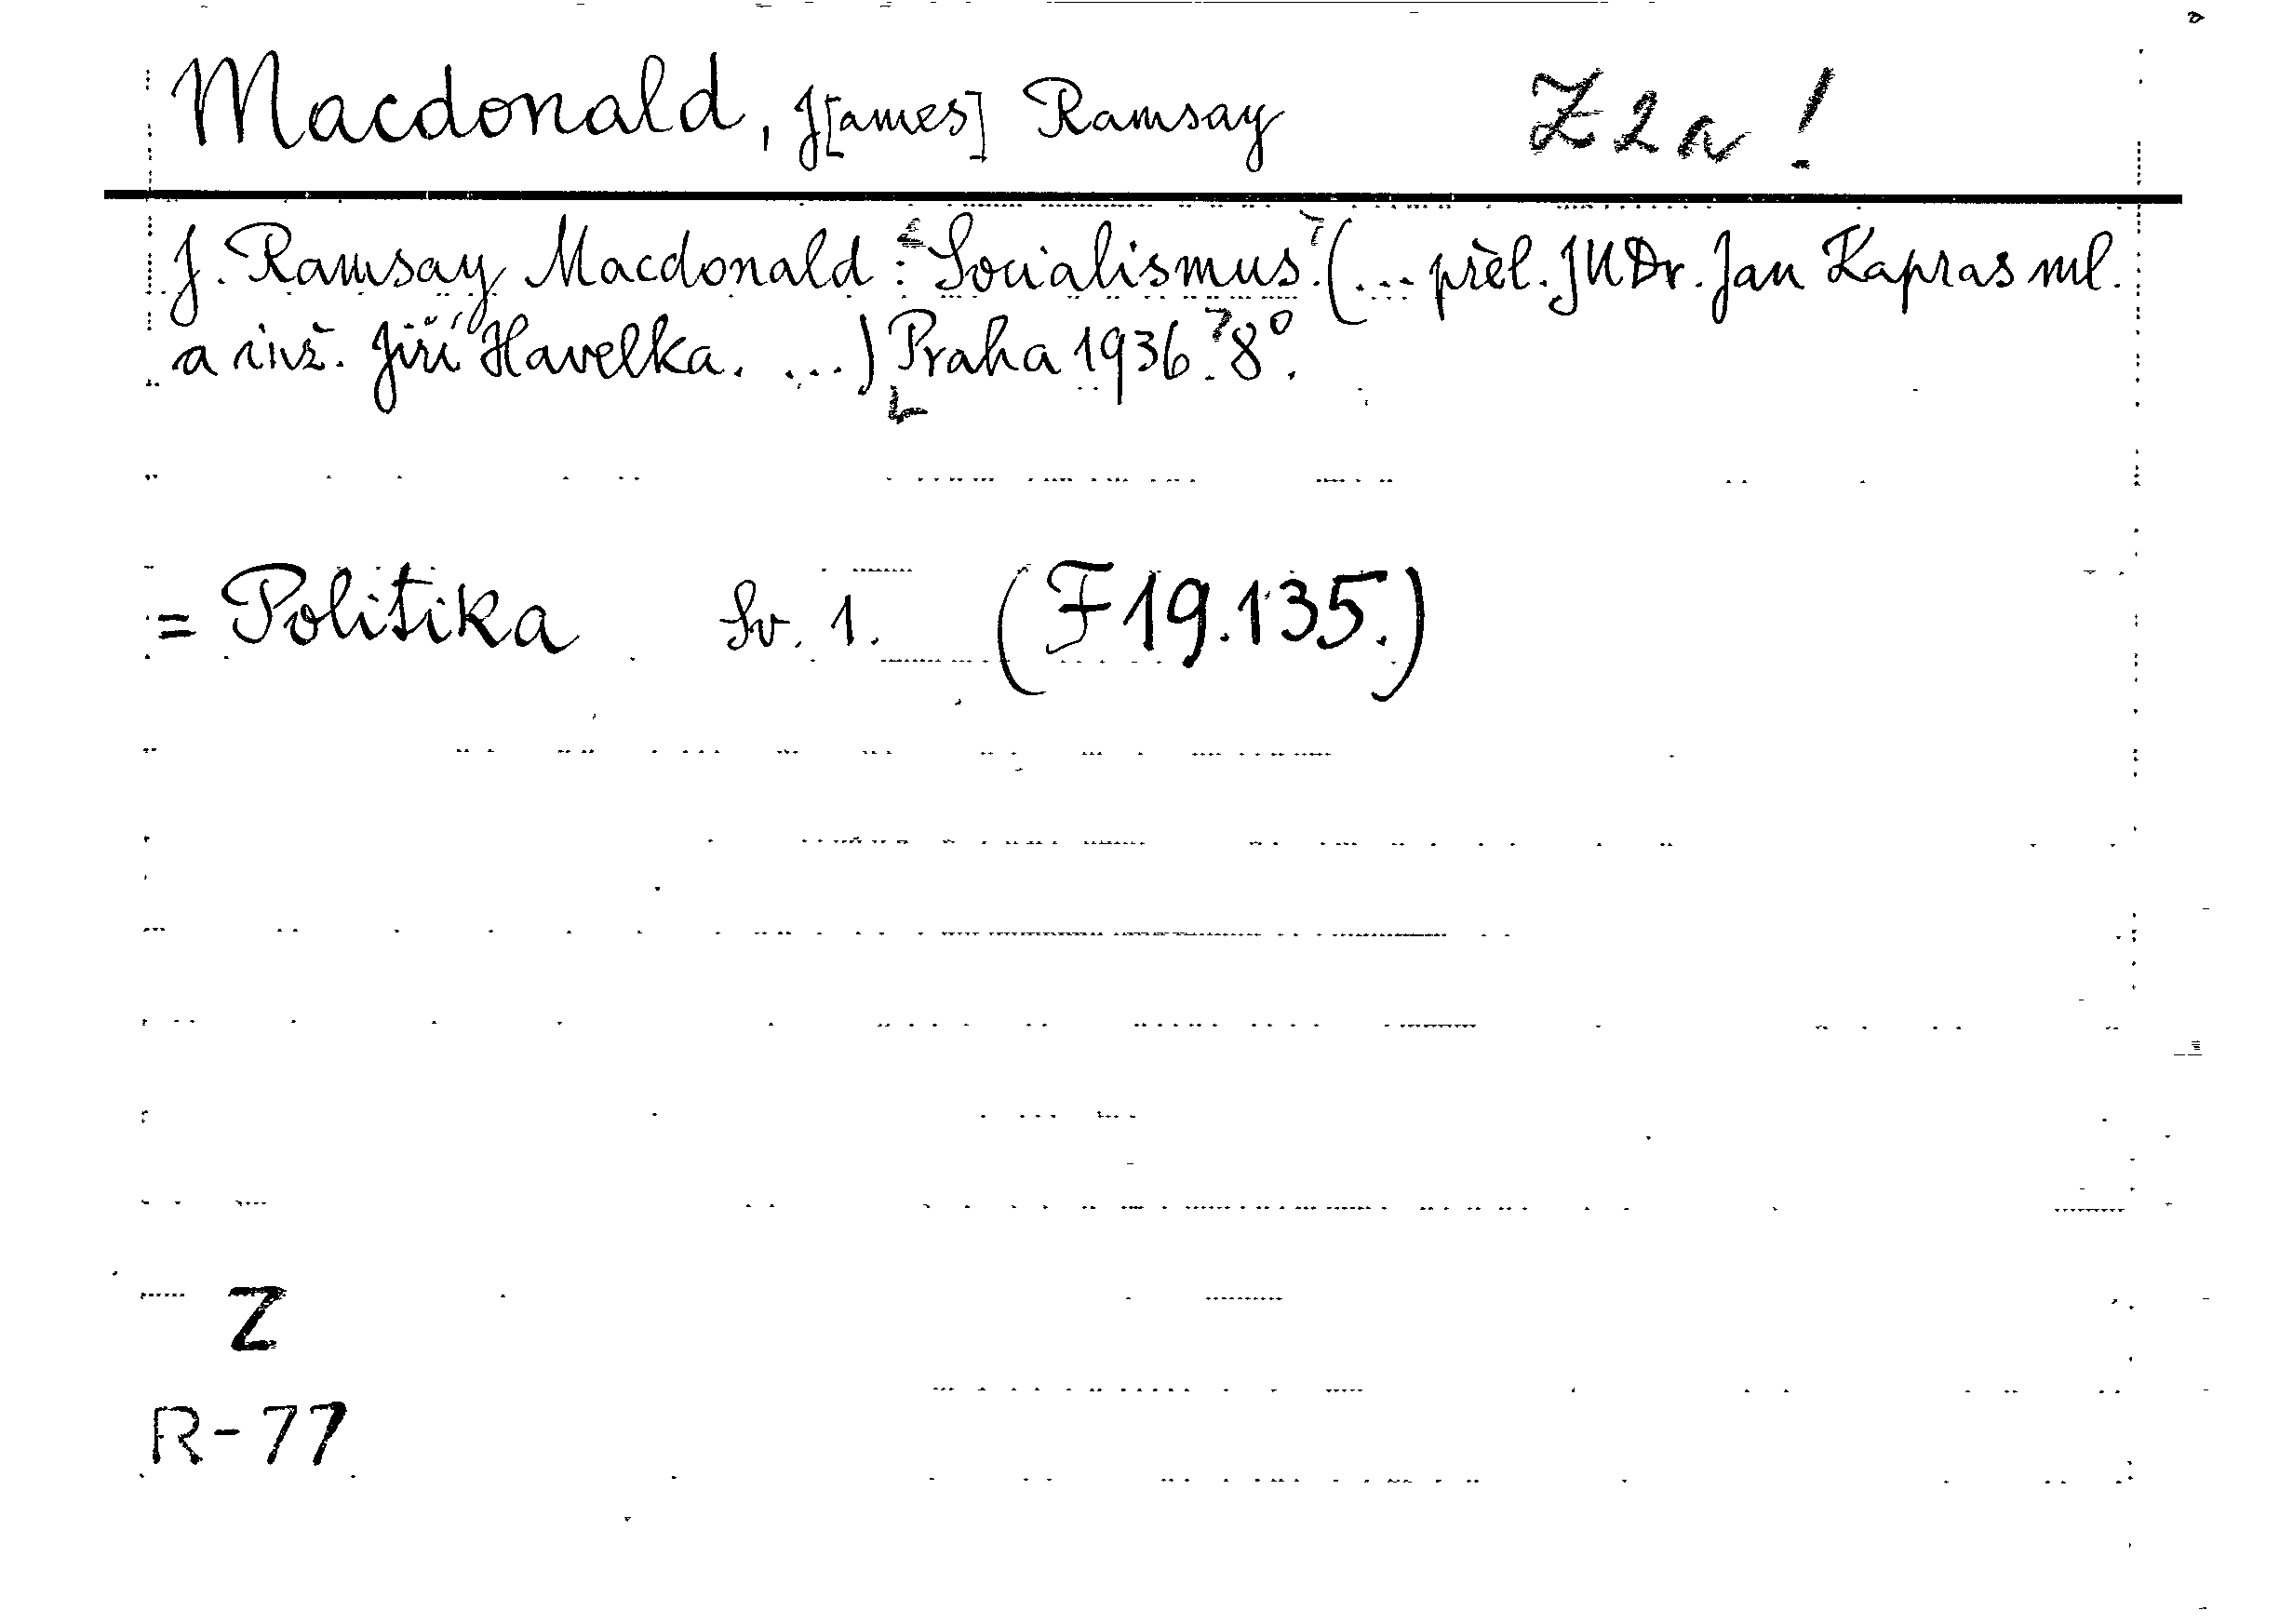 Macdonald, J[ames] Ramsay Z 2 a !
J. Ramsay Macdonald: Socialismus. (... přel. JUDr. Jan Kapras ml.
a inž. Jiří Havelka. ...) Praha 1936. 8°.
= Politika Sv. 1. (F 19.135.)
Z
R-77